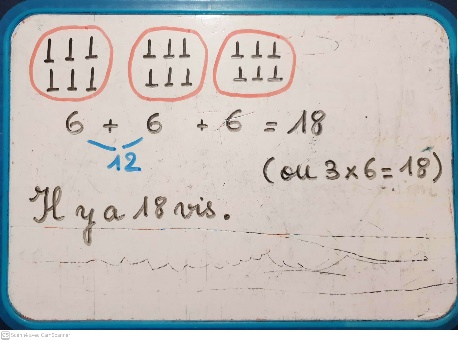 6 + 6 + 6 = 18
12
(ou 3 x 6 = 18)
Il y a 18 vis.
CS Scanné avec CamScanner